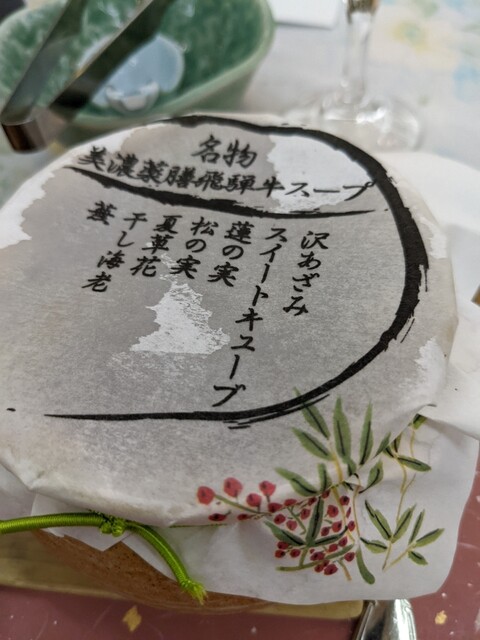 名物
美濃薬膳飛騨牛スープ
沢あざみ
スイートキューブ
蓮の実
松の実
夏草花
干し海老